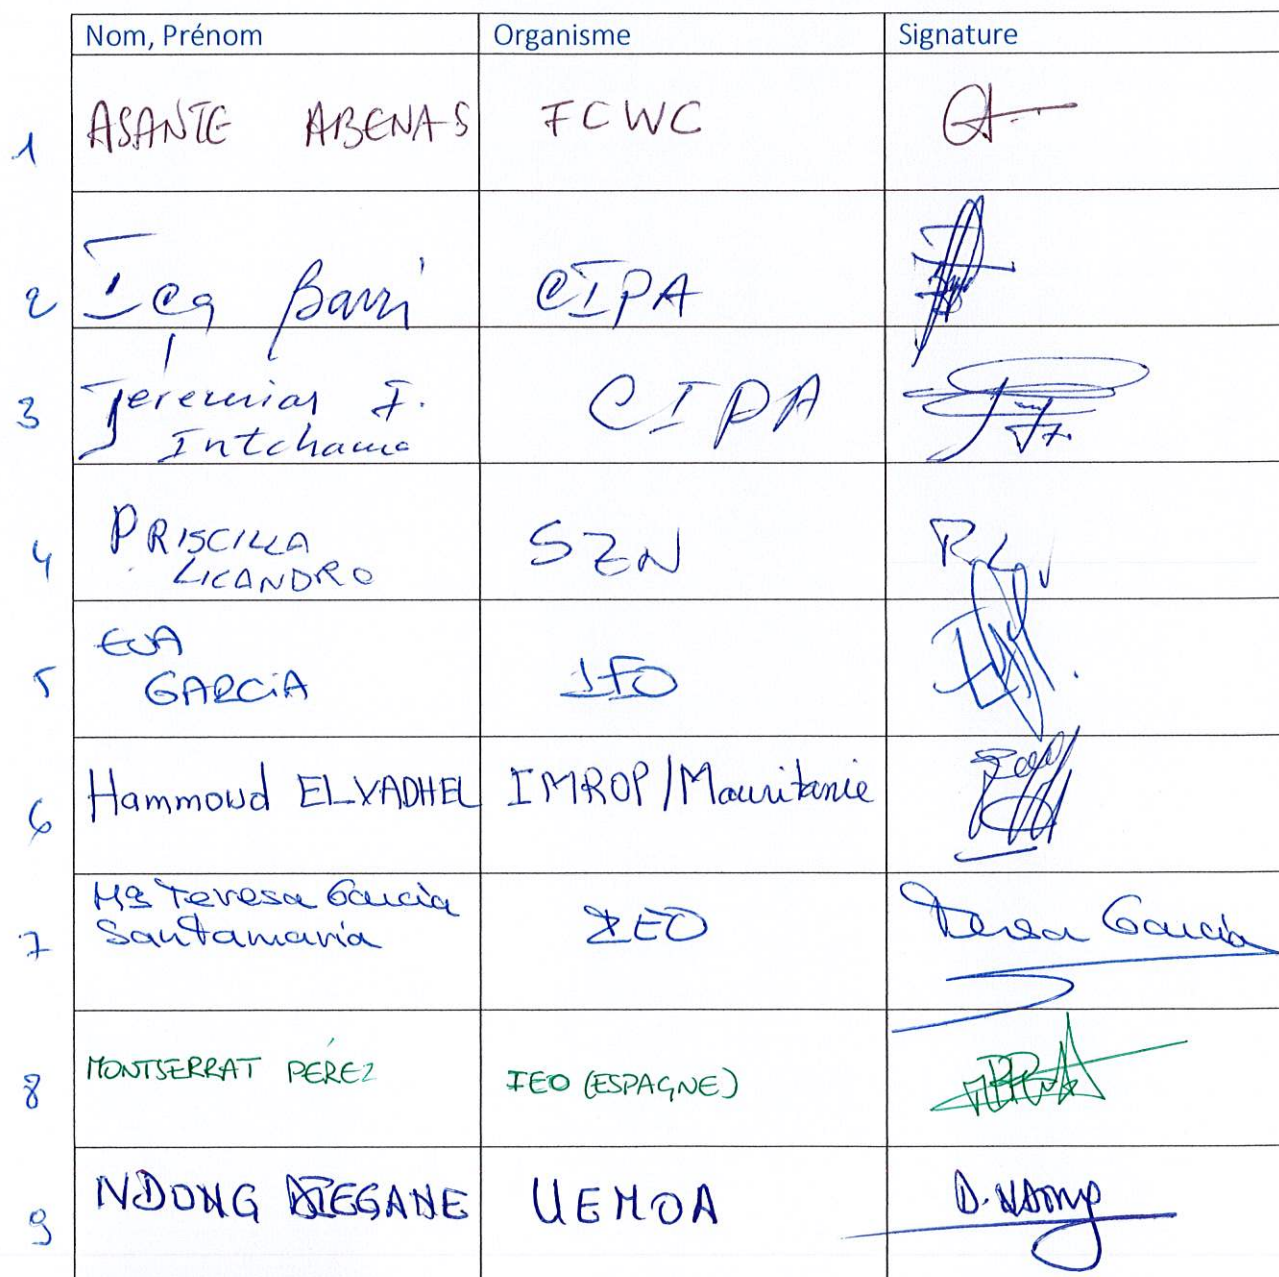 Nom, Prénom Organisme Signature
1 ASANTE ABENAS FCWC
2 Iça Barri CIPA
3 Jeremias F. Intchama CIPA
4 PRISCILLA LICANDRO SZN P.L.
5 EVA GARCIA IEO
6 Hammoud EL VADHEL IMROP/Mauritanie
7 Mª Teresa Garcia Santamaria IEO Teresa Garcia
8 MONTSERRAT PÉREZ IEO (ESPAGNE)
9 NDONG DIEGANE UEMOA D. NDONG